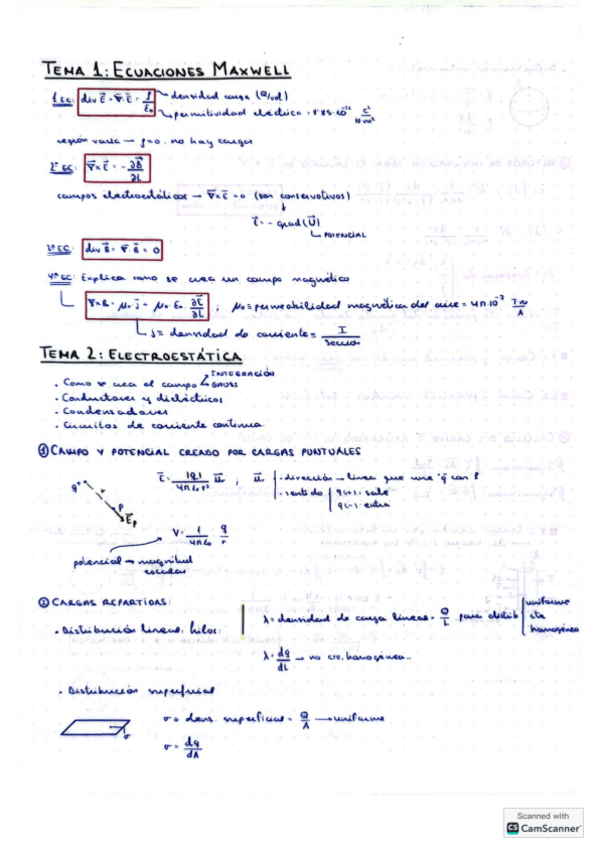 TEMA 1: ECUACIONES MAXWELL
1ª EC: div E⃗ = ∇⃗·E⃗ = ρ/ε₀ → densidad carga (Q/vol)
→ permitividad eléctrica = 8'85·10⁻¹² C²/Nm²
región vacía → ρ=0, no hay cargas
2ª EC: ∇⃗×E⃗ = - ∂B⃗/∂t
campos electroestáticos → ∇⃗×E⃗ = 0 (son conservativos)
E⃗ = - grad(U⃗)
↳ POTENCIAL
3ª EC: div B⃗ = ∇⃗·B⃗ = 0
4ª EC: Explica como se crea un campo magnético
∇⃗×B = μ₀·j⃗ + μ₀·ε₀·∂E⃗/∂t ; μ₀ = permeabilidad magnética del aire = 4π·10⁻⁷ Tm/A
↳ j = densidad de corriente = I/Sección
TEMA 2: ELECTROESTÁTICA
· Como se crea el campo INTEGRACIÓN GAUSS
· Conductores y dieléctricos
· Condensadores
· Circuitos de corriente continua.
① CAMPO Y POTENCIAL CREADO POR CARGAS PUNTUALES
E⃗ = |q|/4πε₀r² u⃗ ; u⃗ · dirección → línea que une q con P
· sentido q(+) → sale
q(-) → entra
q⁺ P E⃗p
V = 1/4πε₀ · q/r
potencial → magnitud escalar
② CARGAS REPARTIDAS:
· Distribución lineal: hilos: λ = densidad de carga lineal = Q/L para distrib uniforme cte homogénea
λ = dq/dL → no cte. homogénea..
· Distribución superficial
σ = dens. superficial = Q/A → uniforme
σ
σ = dq/dA
Scanned with
CS CamScanner